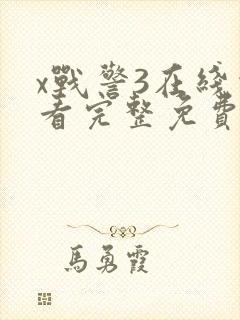 x戰警3在綫
看完整免費
馬勇霞